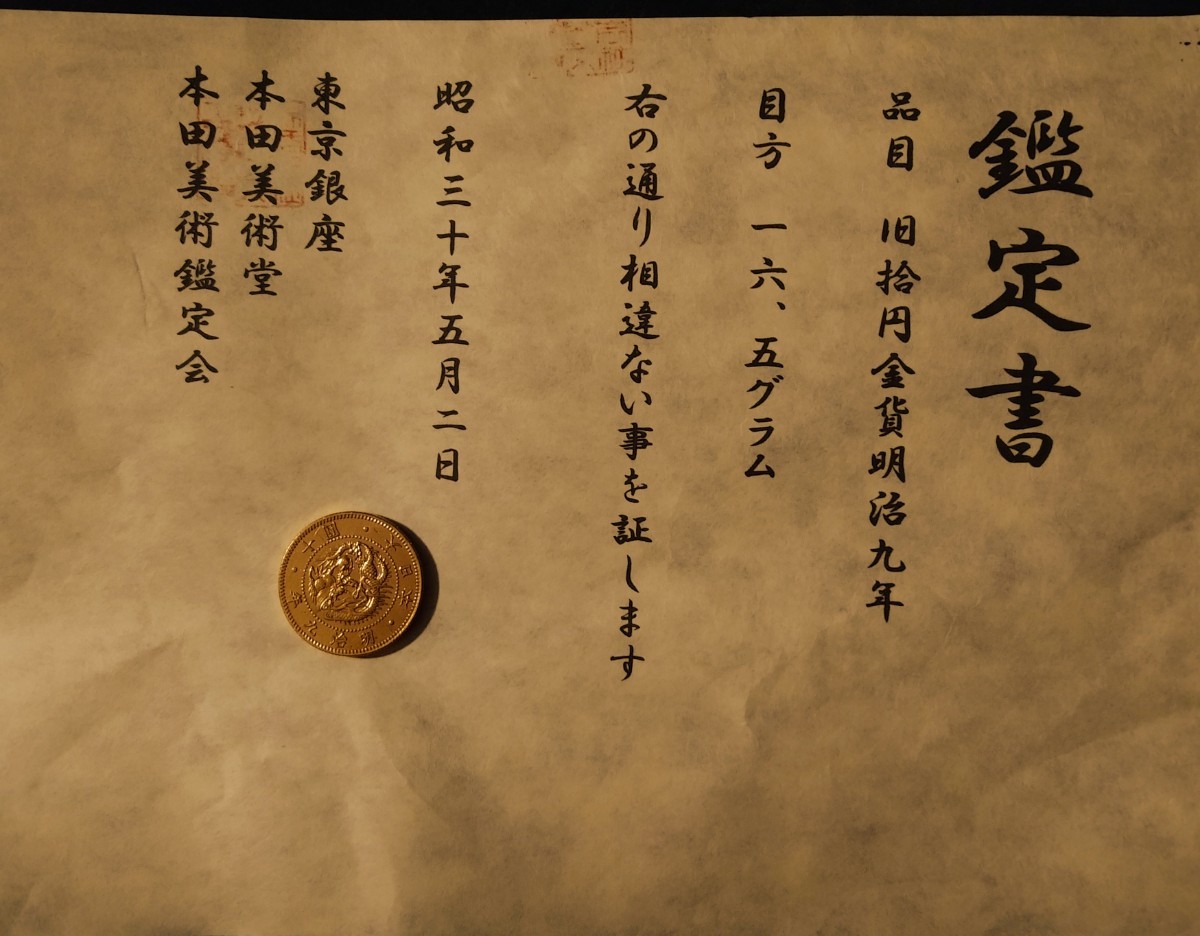 鑑定書
品目 旧拾円金貨明治九年
目方 一六、五グラム
右の通り相違ない事を証します
昭和三十年五月二日
東京銀座
本田美術堂
本田美術鑑定会
明治九年
十圓